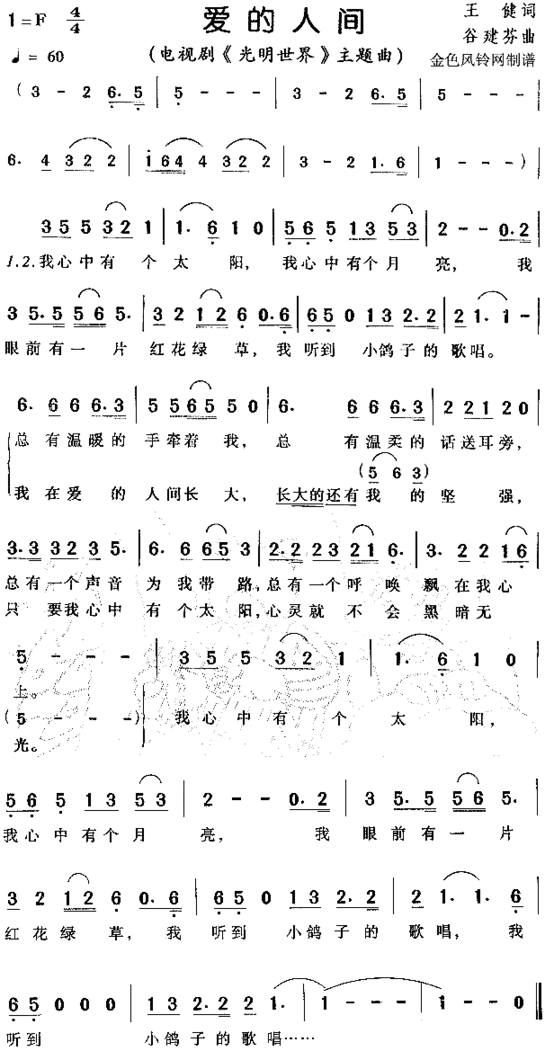 1=F 4/4 爱的人间 王健词
♩=60 (电视剧《光明世界》主题曲) 谷建芬曲
金色风铃网制谱
(3 - 2 6. 5 | 5 - - - | 3 - 2 6. 5 | 5 - - -
6. 4 3 2 2 | i 6 4 4 3 2 2 | 3 - 2 1. 6 | 1 - - -) |
3 5 5 3 2 1 | 1. 6 1 0 | 5 6 5 1 3 5 3 | 2 - - 0. 2 |
1.2.我心中有个太阳， 我心中有个月亮， 我
3 5. 5 5 6 5. | 3 2 1 2 6 0. 6 | 6 5 0 1 3 2. 2 | 2 1. 1 - |
眼前有一片红花绿草，我听到 小鸽子的歌唱。
6. 6 6 6. 3 | 5 5 6 5 5 0 | 6. 6 6 6. 3 | 2 2 1 2 0 |
总有温暖的手牵着我， 总有温柔的话送耳旁，
(5 6 3)
我在爱的人间长大， 长大的还有我的坚强，
3. 3 3 2 3 5. | 6. 6 6 5 3 | 2. 2 2 3 2 1 6. | 3. 2 2 1 6 |
总有一个声音为我带路，总有一个呼唤飘在我心
只要我心中有个太阳，心灵就不会黑暗无
5 - - - | 3 5 5 3 2 1 | 1. 6 1 0 |
上。
(5 - - -) 我心中有个太阳，
光。
5 6 5 1 3 5 3 | 2 - - 0. 2 | 3 5. 5 5 6 5. |
我心中有个月亮， 我眼前有一片
3 2 1 2 6 0. 6 | 6 5 0 1 3 2. 2 | 2 1. 1. 6 |
红花绿草， 我听到 小鸽子的歌唱， 我
6 5 0 0 0 | 1 3 2. 2 2 1. | 1 - - - | 1 - - 0 ‖
听到 小鸽子的歌唱……